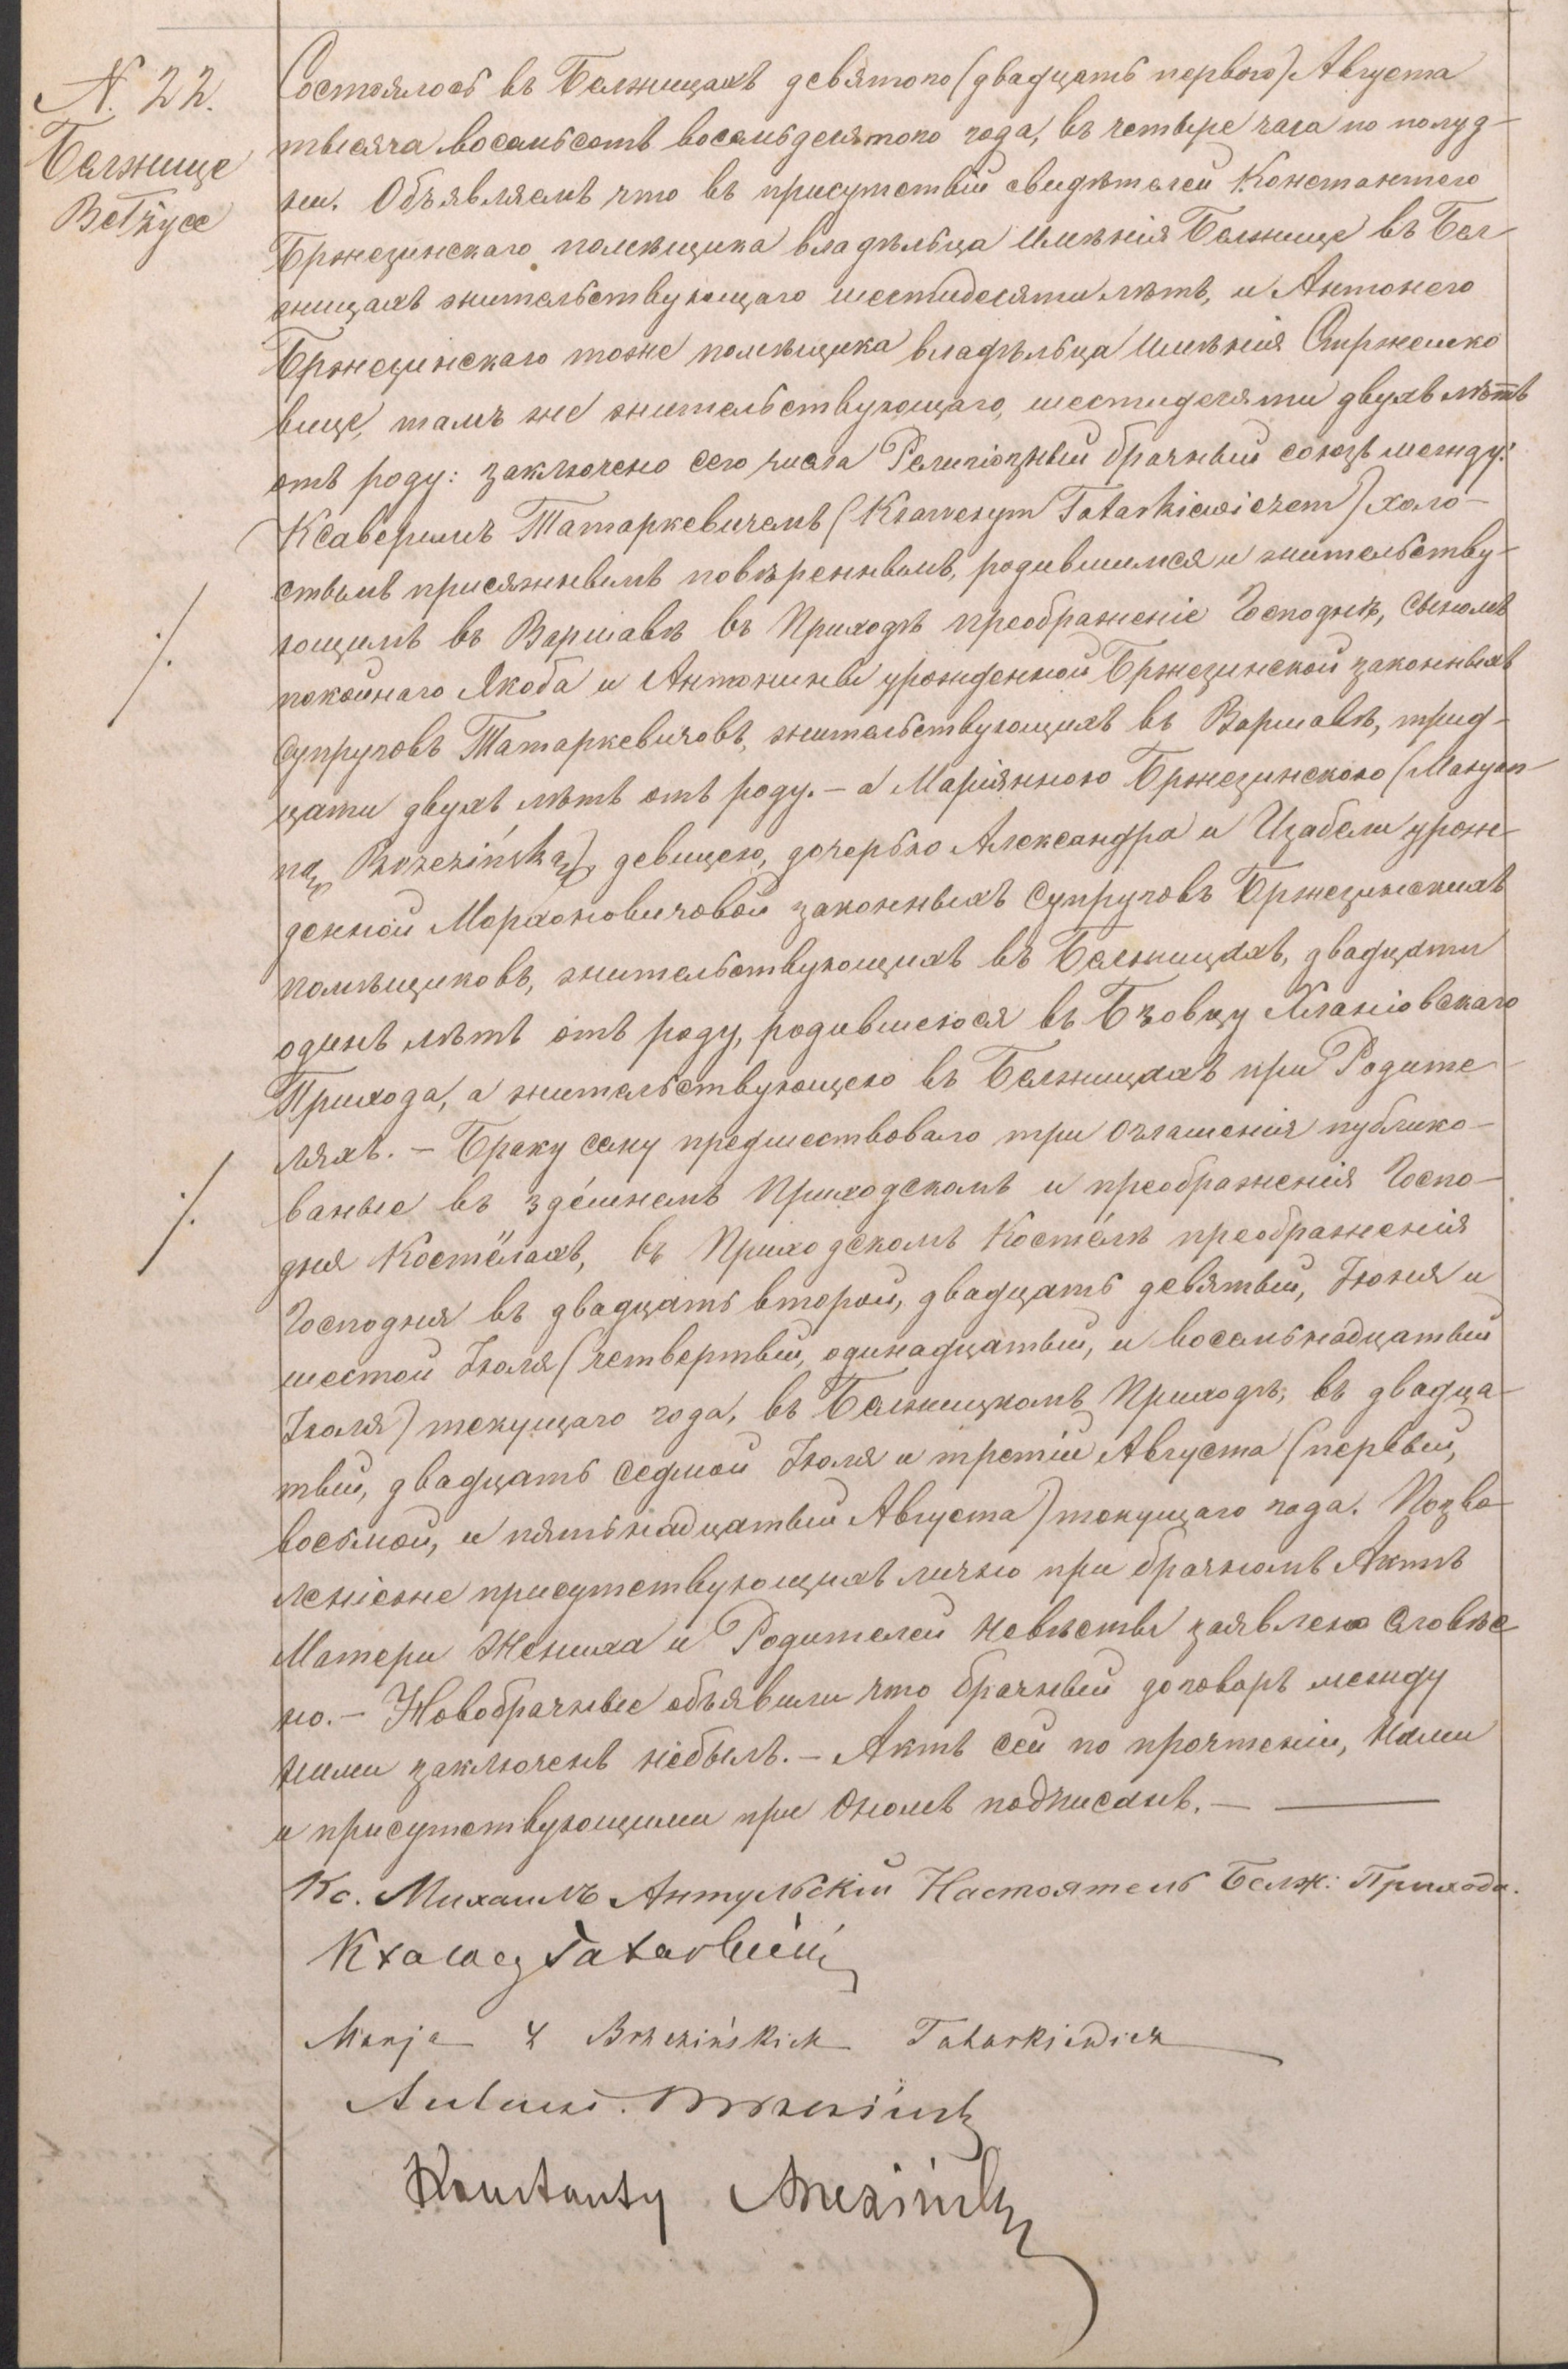 N. 22.
Белжице
Состоялось въ Белжицахъ девятого (двадцать первого) Августа
тысяча восемьсотъ восемьдесятого года, въ четыре часа по полуд-
ни. Объявляемъ что въ присутствіи свидѣтелей Константего
Бржезинскаго помѣщика владѣльца имѣнія Белжице въ Бел-
жицахъ жительствующаго шестидесяти лѣтъ, и Антонего
Бржезинскаго тоже помѣщика владѣльца имѣнія Стржешко
вице, тамъ же жительствующаго, шестидесяти двухъ лѣтъ
отъ роду: заключено сего числа Религіозный брачный союзъ между:
Ксаверимъ Татаркевичемъ (Ksawerym Tatarkiewiczem) холо-
стымъ присяжнымъ повѣреннымъ, родившимся и жительству-
ющимъ въ Варшавѣ въ Приходѣ преображеніе Господнѣ, сыномъ
покойнаго Якоба и Антонины урожденной Бржезинской законныхъ
супруговъ Татаркевичовъ, жительствующихъ въ Варшавѣ, трид-
цати двухъ лѣтъ отъ роду. – а Маріянною Бржезинскою (Maryan-
ną Brzezińską) девицею, дочерью Александра и Изабели урож-
денной Морхоновичовой законныхъ Супруговъ Бржезинскихъ
помѣщиковъ, жительствующихъ въ Белжицахъ, двадцати
одинъ лѣтъ отъ роду, родившеюся въ Бзовцу Хланіовскаго
Прихода, а жительствующею въ Белжицахъ при Родите-
ляхъ. – Браку сему предшествовало три оглашенія публико-
ваные въ здешнемъ Приходскомъ и преображенія Госпо-
дня Костёлахъ, въ Приходскомъ Костёлѣ преображенія
Господня въ двадцать второй, двадцать девятый, Іюня и
шестой Іюля (четвертый, одинадцатый, и восемьнадцатый
Іюля) текущаго года, въ Белжицкомъ Приходѣ; въ двадца-
тый, двадцать седмой Іюля и третій Августа (первый,
восьмой, и пятьнадцатый Августа) текущаго года. Позво-
леніеже присутствующихъ лично при брачномъ Актѣ
Матери Жениха и Родителей невѣсты заявлено Словѣс
но. – Новобрачные объявили что брачный договоръ между
ними заключенъ небылъ. – Актъ сей по прочтеніи, Нами
и присутствующими при Ономъ подписанъ. –
Кс. Михаилъ Антульскій Настоятель Белж: Прихода.
Maria z Brzezińskich Tatarkiewicz
Antoni. Brzeziński
Konstanty Brzeziński